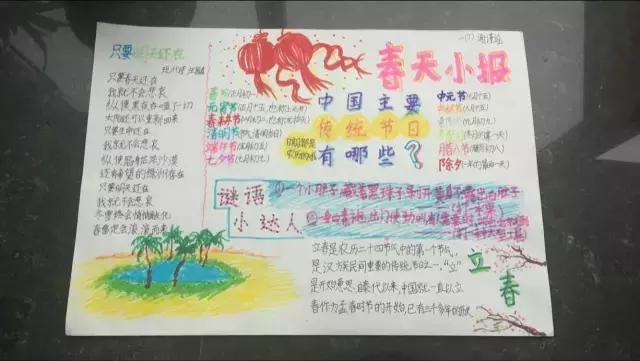 只要明天还在
现代诗 汪国真
只要春天还在
我就不会悲哀
纵使黑夜吞噬一切
太阳还可以重新回来
只要生命还在
我就不会悲哀
纵使陷身茫茫沙漠
还有希望的绿洲存在
只要明天还在
我就不会悲哀
冬雪终会悄悄融化
春雷定会滚滚而来
春天小报
中国主要
传统节日
有哪些?
春节(正月初一)
元宵节(正月十五,也称上元节)
春耕节(二月初二
清明节
端午节(五月初五)
七夕节(七月初七)
中元节(七月十五)
中秋节(八月十五)
冬至节
腊八节(腊月初八)
除夕(一年的最后一天)
谜语
小达人
①一个小胖子,戴着黑珠子
②一身
立春是农历二十四节气中的第一个节气,
是汉族民间重要的传统节日之一。“立”
是开始意思,自秦代以来,中国就一直以立
春作为孟春时节的开始,已有三千多年的历史
立春